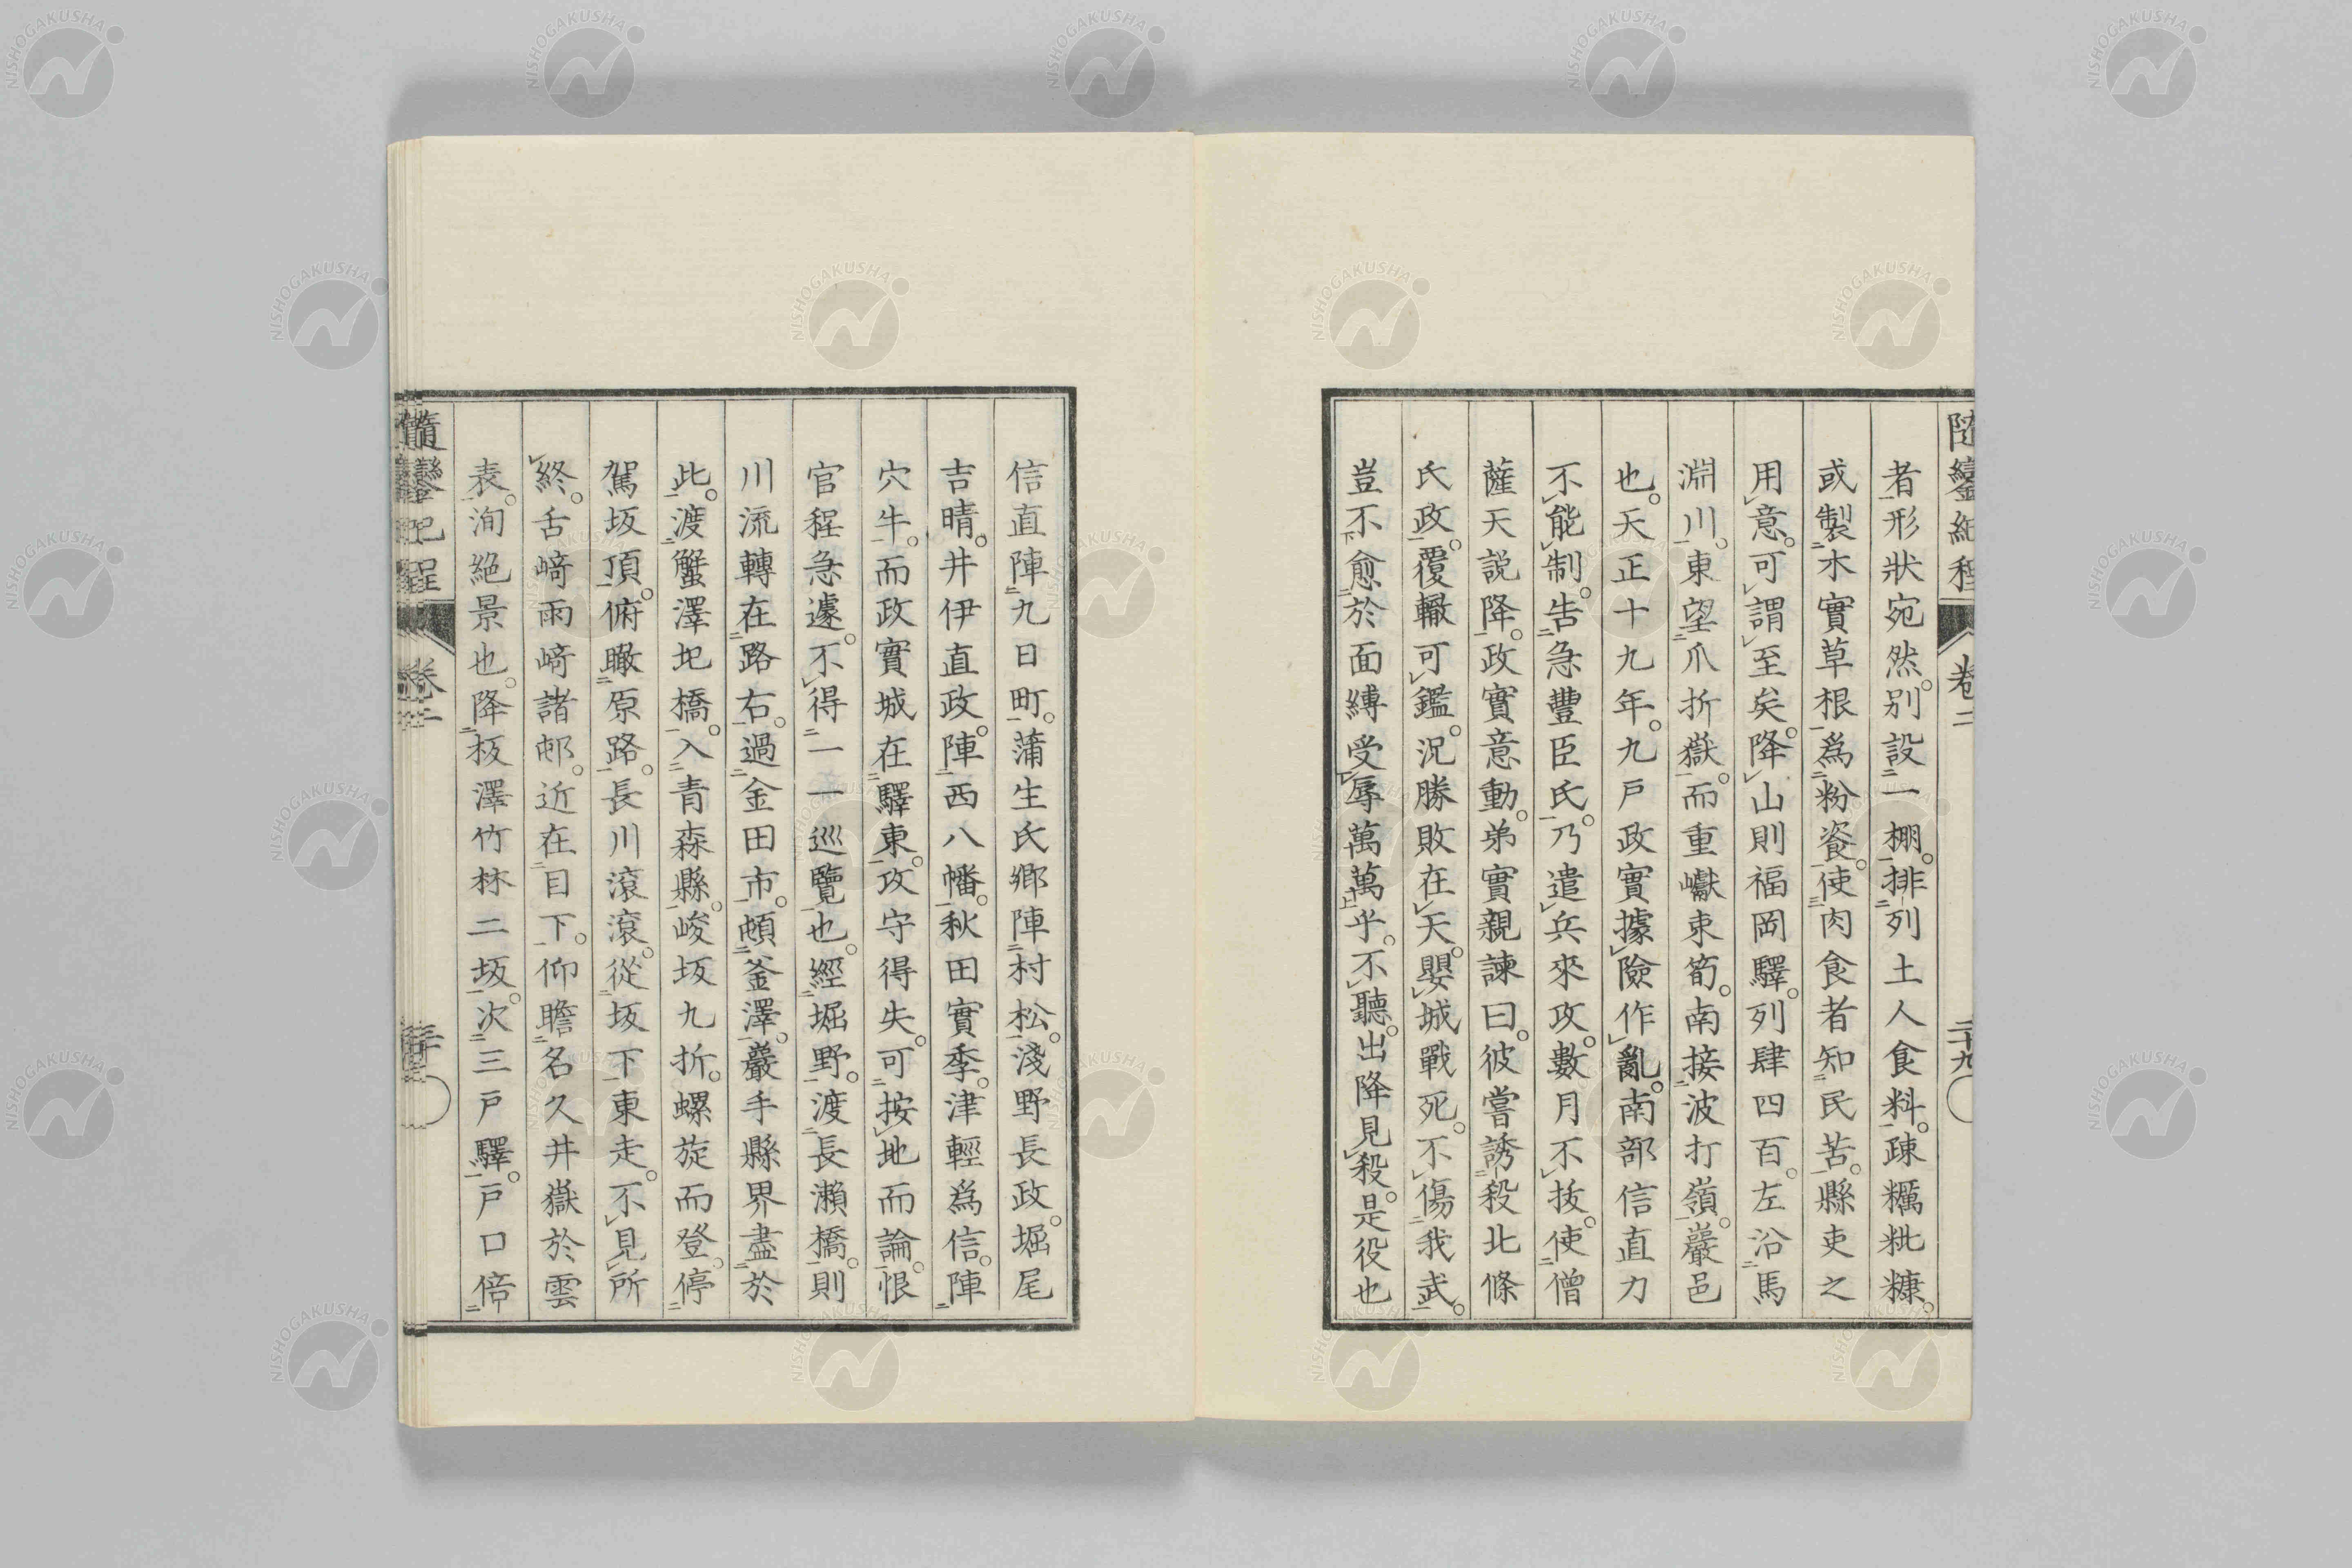 隨鑾紀程 卷二 二十九
者形狀宛然。別設一棚。排列土人食料。疎糲粃糠。
或製木實草根爲粉餈。使肉食者知民苦。縣吏之
用意。可謂至矣。降山則福岡驛。列肆四百。左沿馬
淵川。東望爪折嶽。而重巘東筍。南接波打嶺。巖邑
也。天正十九年。九戶政實據險作亂。南部信直力
不能制。告急豐臣氏。乃遣兵來攻。數月不拔。使僧
薩天説降。政實意動。弟實親諫曰。彼嘗誘殺北條
氏政。覆轍可鑑。況勝敗在天。嬰城戰死。不傷我武。
豈不愈於面縛受辱萬萬乎。不聽。出降見殺。是役也
信直陣九日町。蒲生氏鄉陣村松。淺野長政。堀尾
吉晴。井伊直政。陣西八幡。秋田實季。津輕爲信。陣
穴牛。而政實城在驛東。攻守得失。可按地而論。恨
官程急遽。不得一一巡覽也。經堀野。渡長瀨橋。則
川流轉在路右。過金田市。頓釜澤。巖手縣界盡於
此。渡蟹澤圯橋。入青森縣。峻坂九折。螺旋而登。停
駕坂頂。俯瞰原路。長川滾滾。從坂下東走。不見所
終。舌﨑雨﨑諸邨。近在目下。仰瞻名久井嶽於雲
表。洵絕景也。降板澤竹林二坂。次三戶驛。戶口倍
隨鑾紀程 卷二